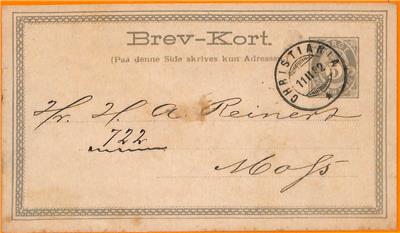 Brev-Kort.
(Paa denne Side skrives kun Adressen
CHRISTIANIA
11 II 82
Hr. H. A. Reinert
722
Moſs